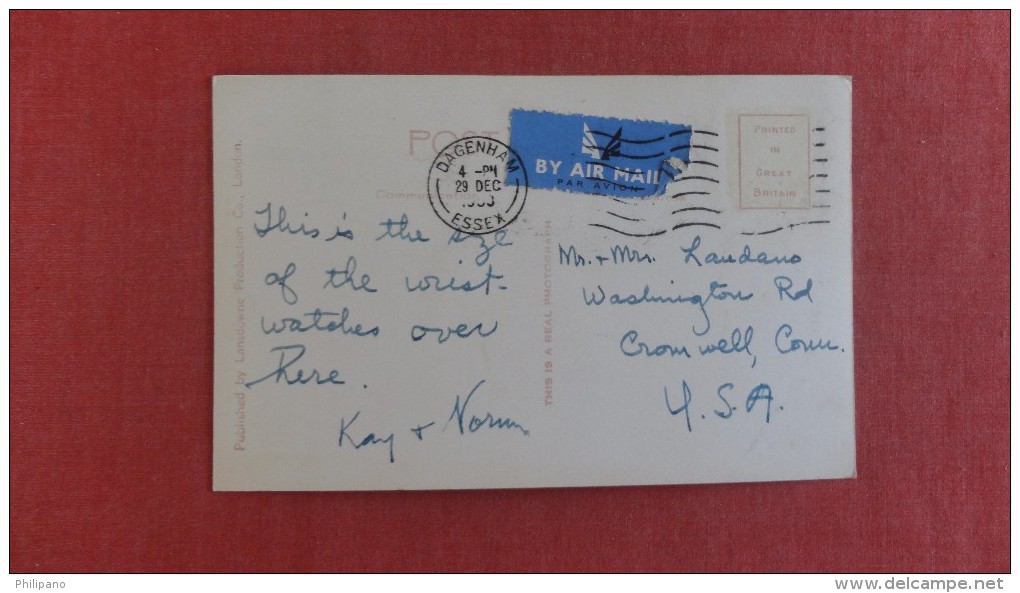 POST
DAGENHAM
4 - PM
29 DEC
ESSEX
BY AIR MAIL
PAR AVION
PRINTED
IN
GREAT
BRITAIN
This is the size
of the wrist-
watches over
here.
Kay + Norm.
Mr. + Mrs. Landano
Washington Rd
Cromwell, Conn.
U.S.A.
Published by Lansdowne Production Co., London.
THIS IS A REAL PHOTOGRAPH
Philipano
www.delcampe.net